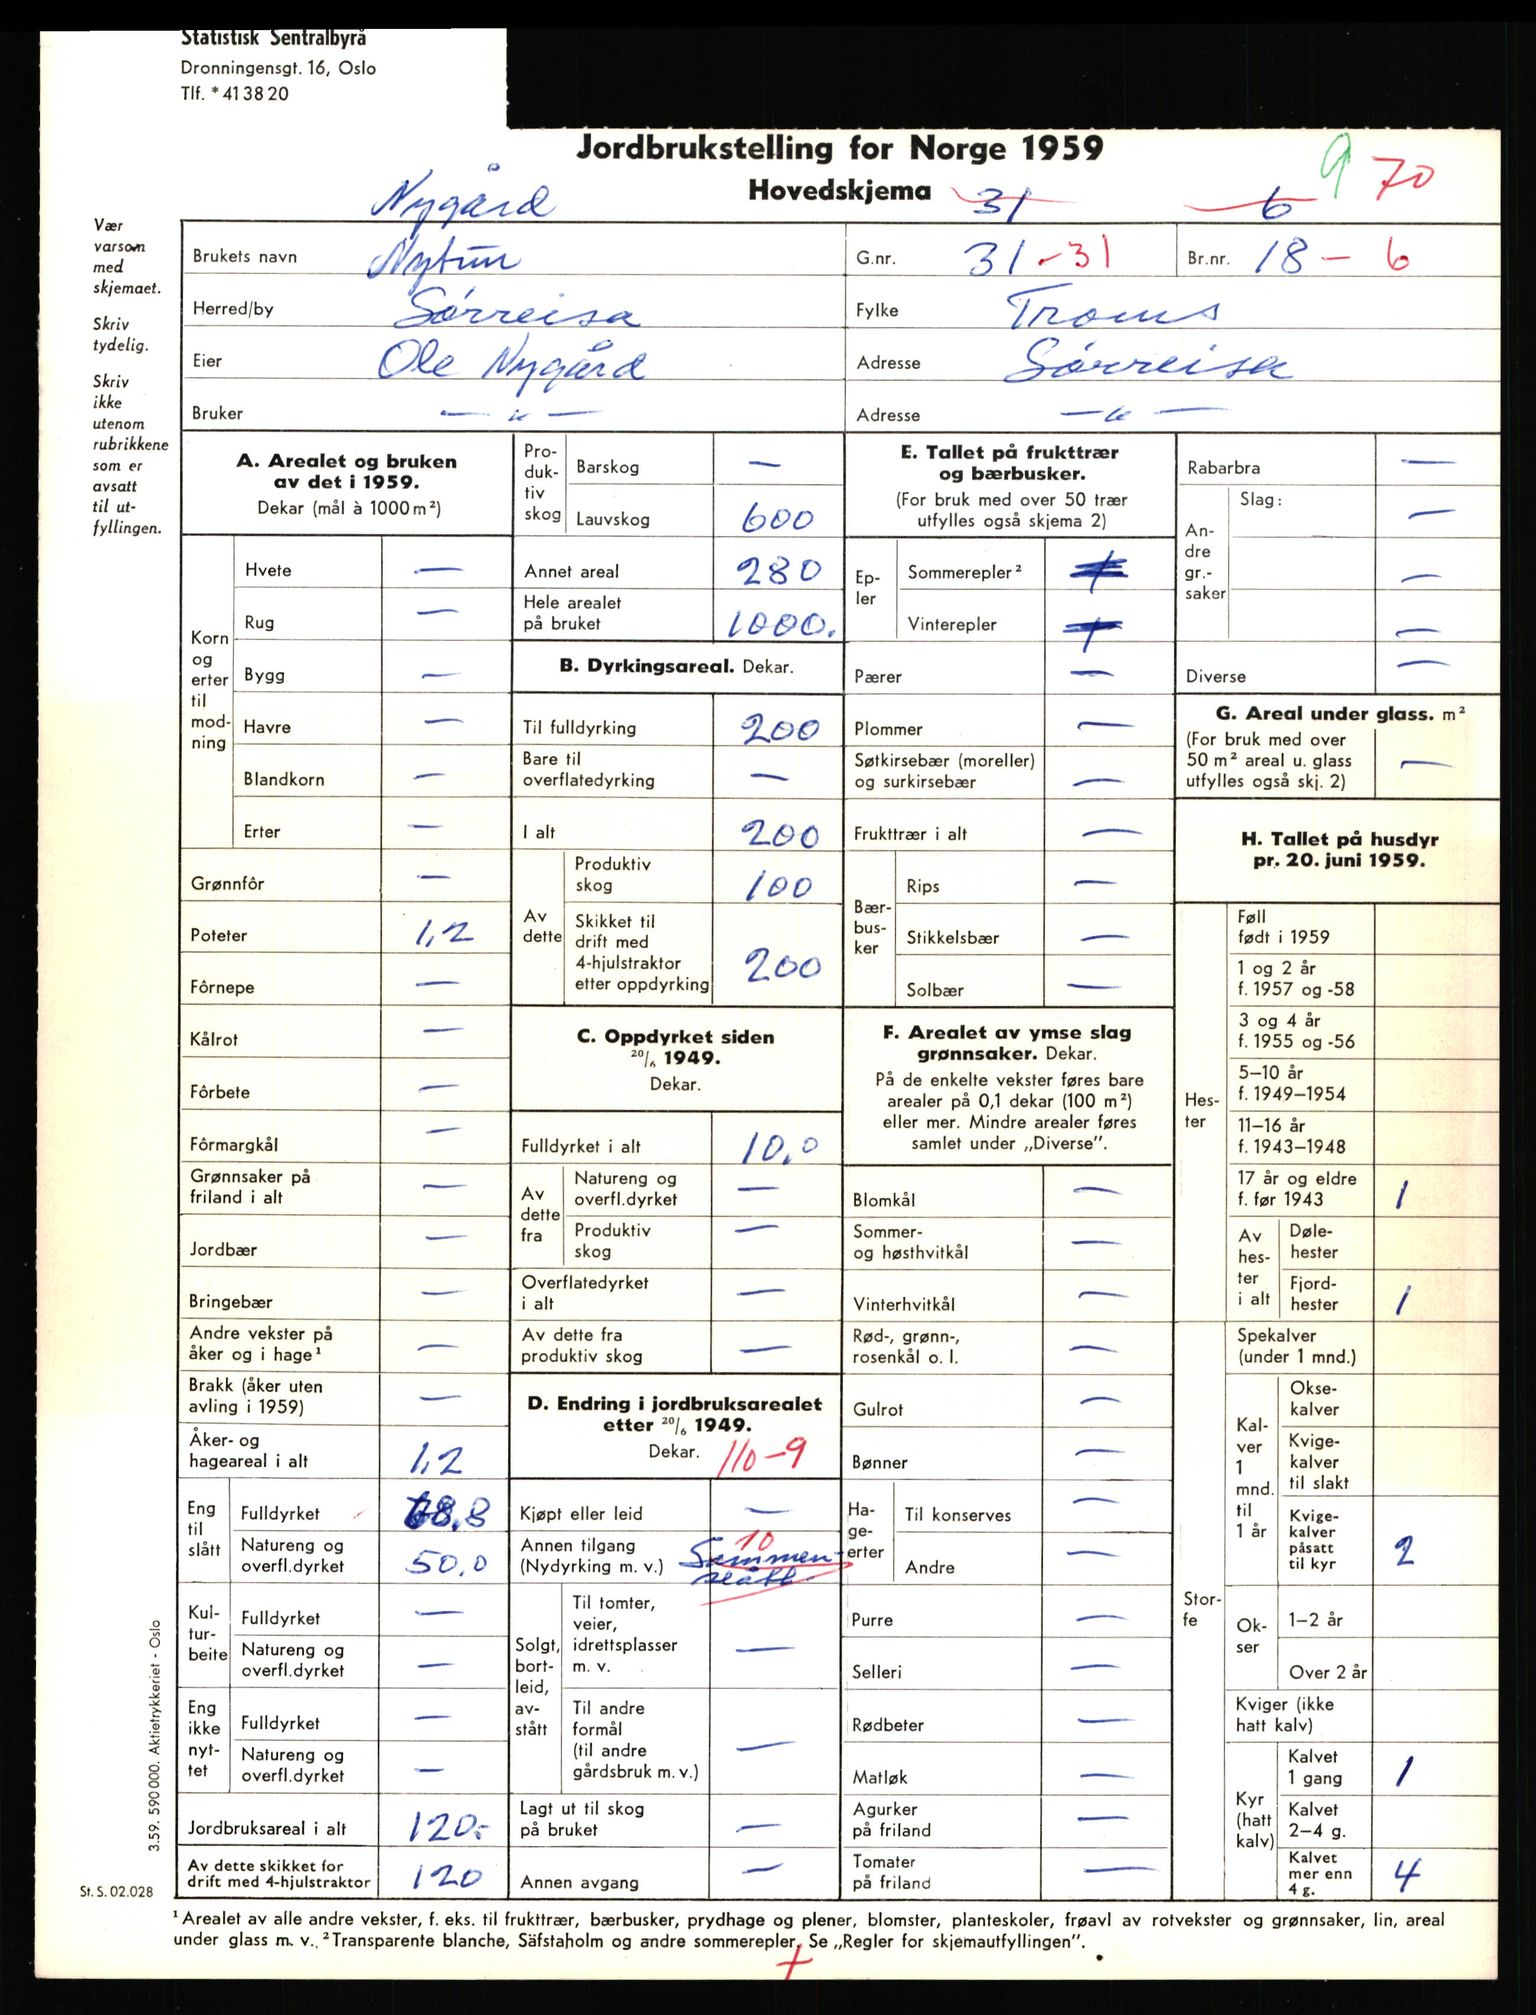 Statistisk Sentralbyrå
Dronningensgt. 16, Oslo
Tlf. * 41 38 20
Jordbrukstelling for Norge 1959
Hovedskjema
9 70
Nygård
31
6
Vær
varsom
med
skjemaet.
Skriv
tydelig.
Skriv
ikke
utenom
rubrikkene
som er
avsatt
til ut-
fyllingen.
Brukets navn Nytun
G.nr. 31 - 31
Br.nr. 18 - 6
Herred/by Sørreisa
Fylke Troms
Eier Ole Nygård
Adresse Sørreisa
Bruker — " —
Adresse — " —
A. Arealet og bruken
av det i 1959.
Dekar (mål à 1000 m²)
Korn
og
erter
til
mod-
ning
Hvete —
Rug —
Bygg —
Havre —
Blandkorn —
Erter —
Grønnfôr —
Poteter 1,2
Fôrnepe —
Kålrot —
Fôrbete —
Fôrmargkål —
Grønnsaker på
friland i alt —
Jordbær —
Bringebær —
Andre vekster på
åker og i hage¹ —
Brakk (åker uten
avling i 1959) —
Åker- og
hageareal i alt 1,2
Eng
til
slått
Fulldyrket 68,8
Natureng og
overfl.dyrket 50,0
Kul-
tur-
beite
Fulldyrket —
Natureng og
overfl.dyrket —
Eng
ikke
nyt-
tet
Fulldyrket —
Natureng og
overfl.dyrket —
Jordbruksareal i alt 120,-
Av dette skikket for
drift med 4-hjulstraktor 120
Pro-
duk-
tiv
skog
Barskog —
Lauvskog 600
Annet areal 280
Hele arealet
på bruket 1000.
B. Dyrkingsareal. Dekar.
Til fulldyrking 200
Bare til
overflatedyrking —
I alt 200
Av
dette
Produktiv
skog 100
Skikket til
drift med
4-hjulstraktor
etter oppdyrking 200
C. Oppdyrket siden
20/6 1949.
Dekar.
Fulldyrket i alt 10,0
Av
dette
fra
Natureng og
overfl.dyrket —
Produktiv
skog —
Overflatedyrket
i alt —
Av dette fra
produktiv skog —
D. Endring i jordbruksarealet
etter 20/6 1949.
Dekar. 110-9
Kjøpt eller leid —
Annen tilgang
(Nydyrking m. v.) 10
Sammen-
slått
Solgt,
bort-
leid,
av-
stått
Til tomter,
veier,
idrettsplasser
m. v. —
Til andre
formål
(til andre
gårdsbruk m. v.) —
Lagt ut til skog
på bruket —
Annen avgang —
E. Tallet på frukttrær
og bærbusker.
(For bruk med over 50 trær
utfylles også skjema 2)
Ep-
ler
Sommerepler²
Vinterepler
Pærer —
Plommer —
Søtkirsebær (moreller)
og surkirsebær —
Frukttrær i alt —
Bær-
bus-
ker
Rips —
Stikkelsbær —
Solbær —
F. Arealet av ymse slag
grønnsaker. Dekar.
På de enkelte vekster føres bare
arealer på 0,1 dekar (100 m²)
eller mer. Mindre arealer føres
samlet under „Diverse”.
Blomkål —
Sommer-
og høsthvitkål —
Vinterhvitkål —
Rød-, grønn-,
rosenkål o. l. —
Gulrot —
Bønner —
Ha-
ge-
erter
Til konserves —
Andre —
Purre —
Selleri —
Rødbeter —
Matløk —
Agurker
på friland —
Tomater
på friland —
Rabarbra —
An-
dre
gr.-
saker
Slag: —
—
—
Diverse —
G. Areal under glass. m²
(For bruk med over
50 m² areal u. glass
utfylles også skj. 2) —
H. Tallet på husdyr
pr. 20. juni 1959.
Hes-
ter
Føll
født i 1959
1 og 2 år
f. 1957 og -58
3 og 4 år
f. 1955 og -56
5–10 år
f. 1949–1954
11–16 år
f. 1943–1948
17 år og eldre
f. før 1943 1
Av
hes-
ter
i alt
Døle-
hester
Fjord-
hester 1
Stor-
fe
Spekalver
(under 1 mnd.)
Kal-
ver
1
mnd.
til
1 år
Okse-
kalver
Kvige-
kalver
til slakt
Kvige-
kalver
påsatt
til kyr 2
Ok-
ser
1–2 år
Over 2 år
Kviger (ikke
hatt kalv)
Kyr
(hatt
kalv)
Kalvet
1 gang 1
Kalvet
2–4 g.
Kalvet
mer enn
4 g. 4
3.59. 590 000. Aktietrykkeriet - Oslo
St. S. 02.028
¹ Arealet av alle andre vekster, f. eks. til frukttrær, bærbusker, prydhage og plener, blomster, planteskoler, frøavl av rotvekster og grønnsaker, lin, areal
under glass m. v. ² Transparente blanche, Säfstaholm og andre sommerepler. Se „Regler for skjemautfyllingen”.
+